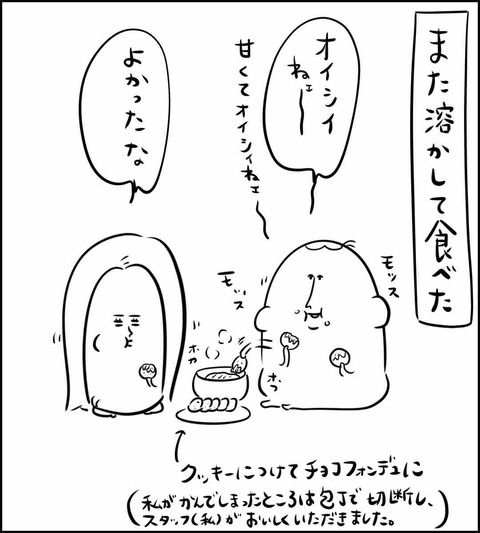 また溶かして食べた
オイシイ
ねェ〜
甘くてオイシイねェ〜
よかったな
モッス
モッス
ホカ
ホカ
クッキーにつけてチョコフォンデュに
(私がかんでしまったところは包丁で切断し、
スタッフ(私)がおいしくいただきました。)